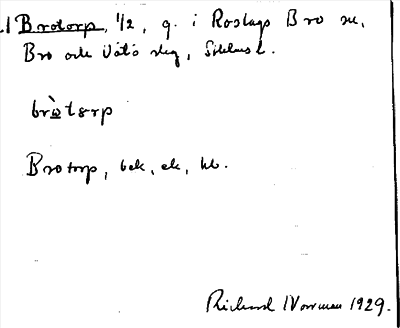 Brotorp, 1/2, g. i Roslags Bro sn,
Bro och Vätö slg, Sthlms l.
bròtorp
Brotorp, bek, ek, hb.
Rickard Norrman 1929.